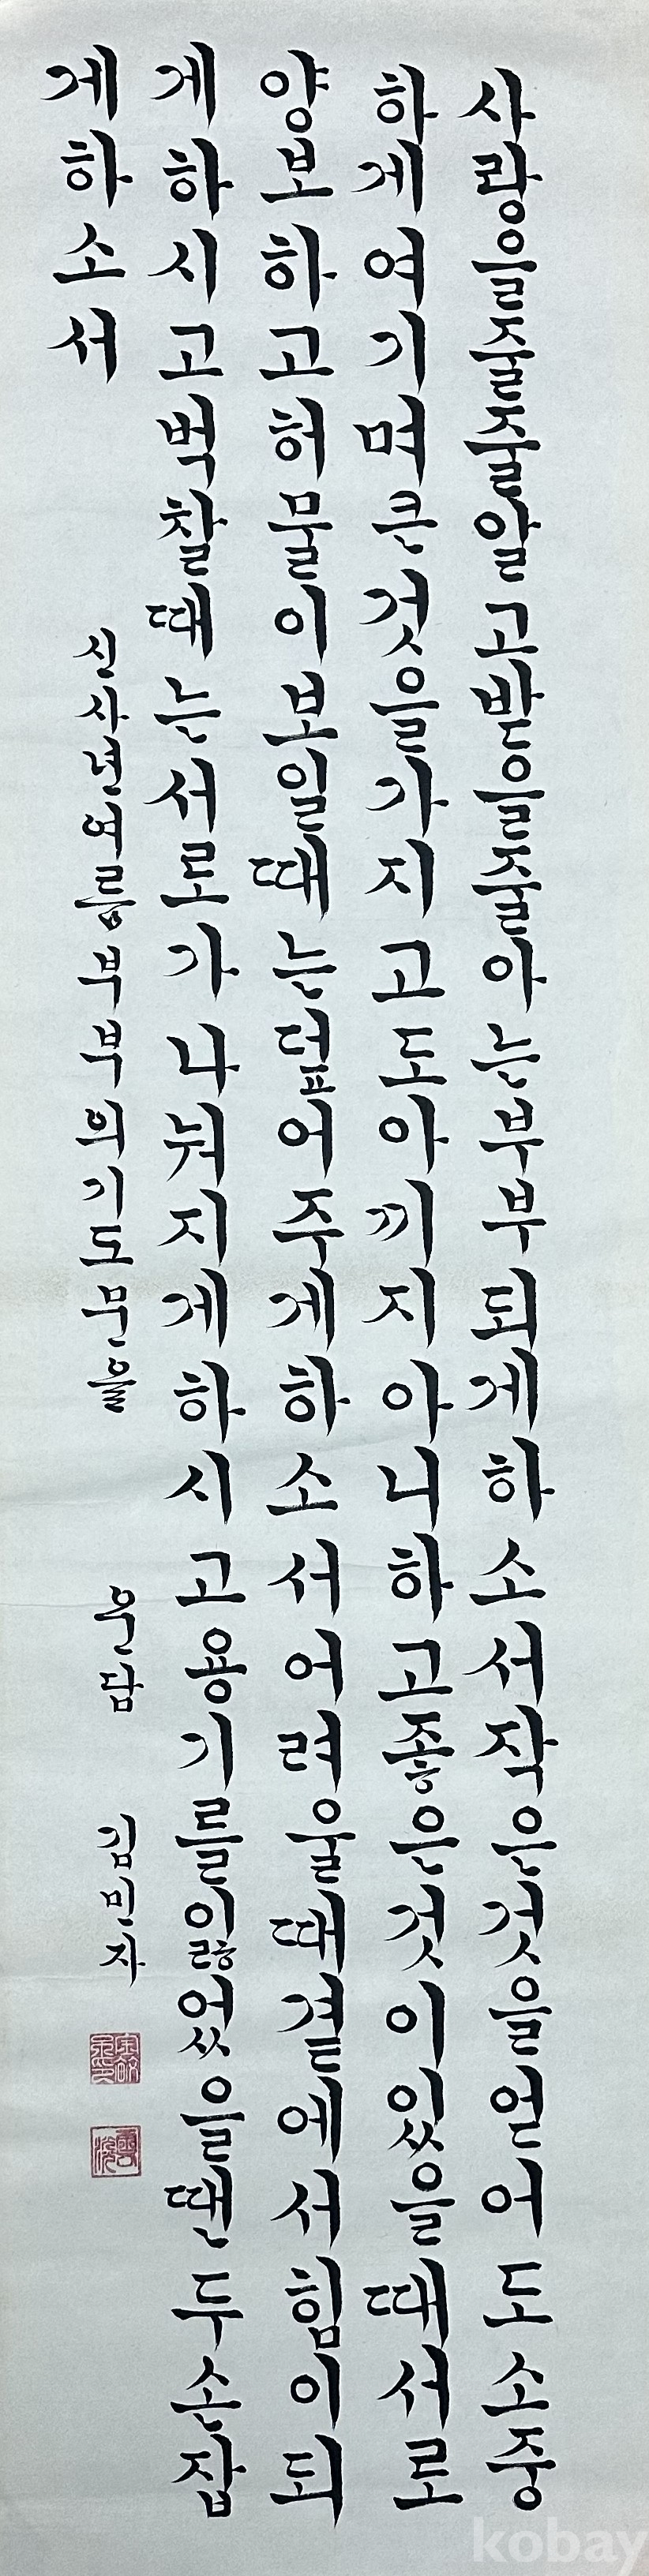 사랑을줄줄알고받을줄아는부부되게하소서작은것을얻어도소중
하게여기며큰것을가지고도아끼지아니하고좋은것이있을때서로
양보하고허물이보일때는덮어주게하소서어려울때곁에서힘이되
게하시고벅찰때는서로가나눠지게하시고용기를잃었을땐두손잡
게하소서
신사년여름부부의기도문을 운담 김빈자
kobay